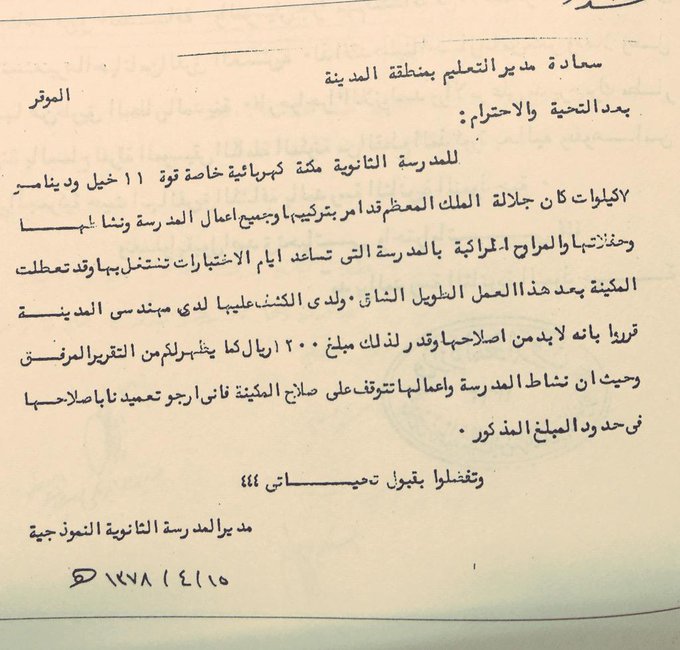 سعادة مدير التعليم بمنطقة المدينة
الموقر
بعد التحية والاحترام :
للمدرسة الثانوية مكنة كهربائية خاصة قوة ١١ خيل ودينامر
٧ كيلوات كان جلالة الملك المعظم قد امر بتركيبها وجميع اعمال المدرسة ونشاطها
وحفلاتها والمراوح المركبة بالمدرسة التى تساعد ايام الاختبارات تشتغل بها وقد تعطلت
المكينة بعد هذا العمل الطويل الشاق ٠ ولدى الكشف عليها لدى مهندسى المدينة
قرروا بانه لابد من اصلاحها وقدر لذلك مبلغ ١٢٠٠ ريال كما يظهر لكم من التقرير المرفق
وحيث ان نشاط المدرسة واعمالها تتوقف على صلاح المكينة فانى ارجو تعميدنا باصلاحها
فى حدود المبلغ المذكور ٠
وتفضلوا بقبول تحياتى ٤٤٤
مدير المدرسة الثانوية النموذجية
١٣٧٨/٤/١٥ هـ